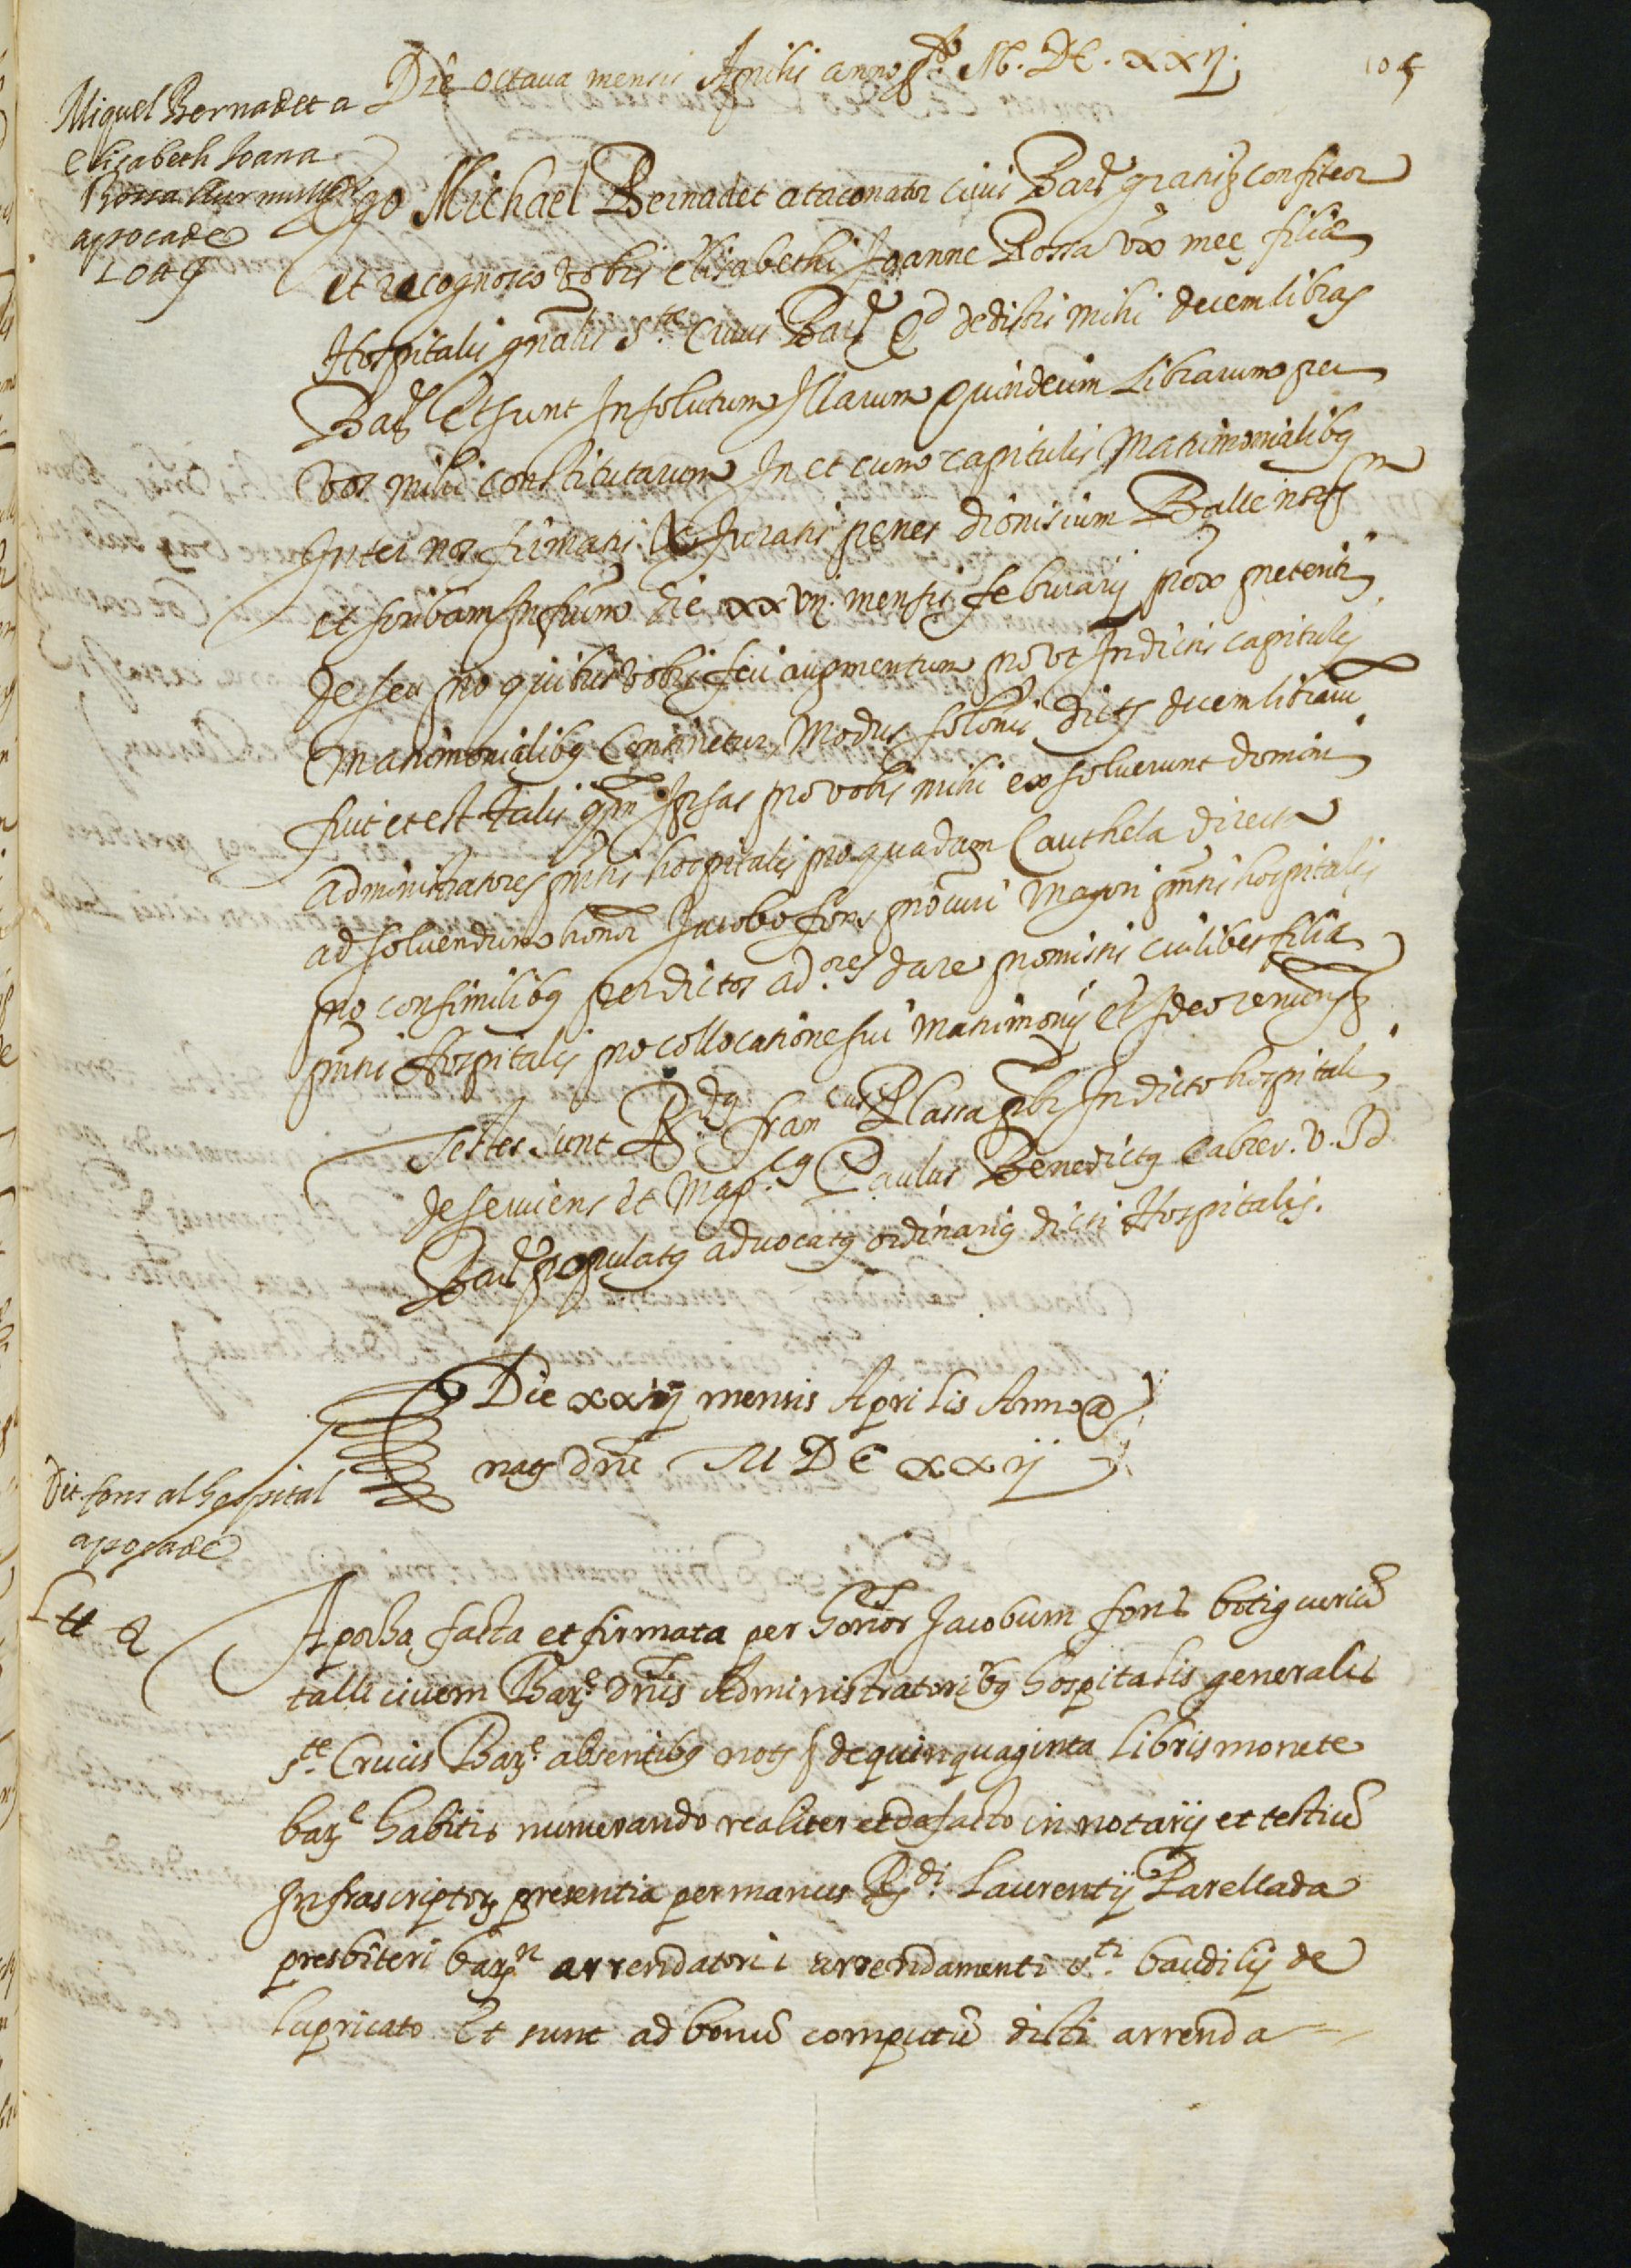 Die octava mensis Aprilis anno p.º M. DC. xxij.
105
Miquel Bernadet a
Elisabeth Joana
apocade
10 ⁊
Ego Michael Bernadet ataconator civis Barᵉ gratis confiteor
et recognosco vobis Elisabethi Joanne Rossa vx meę filie
Hospitalis gnalis S.te Crucis Barᵉ Qd dedistis mihi decem libras
Barᵉ Et sunt In solutum Illarum quindecim Librarum per
vos mihi constitutarum In et cum capitulis Matrimonialibq
Inter nos firmatis & Juratis penes dionisium
et scribam Infrum die xxvij. mensis februarij prox preteriti
de seu pro quibus vobis feci augmentum provt In dictis capitulis
Matrimonialibq Continetur, Modus solonis dictę decem librarum
fuit et est talis qm Ipsas pro vobis mihi exsolverunt domini
Administratores pntis hospitalis pro quadam Cauthela directa
ad solvendum honor Jacobo fons procuri Majori pntis hospitalis
pro consimilibq per dictos ad.res dare promissis cuilibet filie
pnti Hospitalis pro collocatione sui Matrimonij et Ideo renuns
Testes sunt R.dq Francus Plassa pbr In dicto hospitali
deserviens et Mag.cq Paulus Benedictq Cabrer. V. J d
Barᵉ populatq advocatq ordinariq dicti Hospitalis.
Die xxiij mensis Aprilis Anno a
natę dni M DC xxij
Dit fons al hospital
apocade
Apocha facta et firmata per honor Jacobum fons botiguerium
talli civem Barᵉ dnis Administratoribq hospitalis generalis
s.te Crucis Barᵉ absentibq notę de quinquaginta libris monete
barᵉ habitis numerando realiter et de facto in notarij et testium
Infrascriptor presentia per manus R.di Laurentij Parellada
presbiteri barⁿ arrendatori arrendamenti s.ti baudilij de
lupricato Et sunt ad bonum computum dicti arrenda-